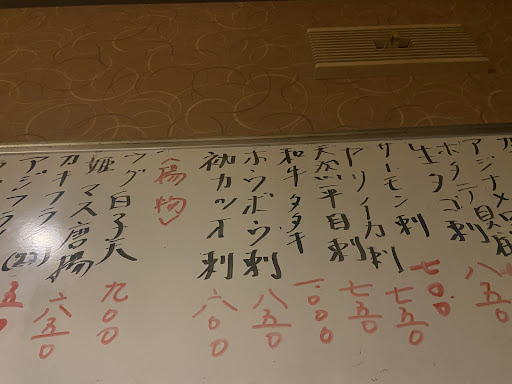 アジナメロ
ホタテ貝刺 八五〇
生タコ刺 七〇〇
サーモン刺 七五〇
ヤリイカ刺 七五〇
天然平目刺
和牛タタキ 一〇〇〇
ホウボウ刺 八五〇
初カツオ刺 八〇〇
〈揚物〉
フグ白子天
姫マス唐揚 九〇〇
カキフライ 八五〇
アジフライ